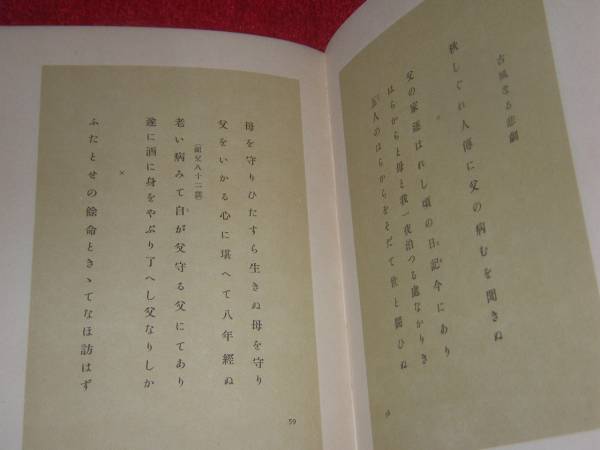 古風なる悲劇
秋しぐれ人傳に父の病むを聞きぬ
×
父の家逐はれし頃の日記今にあり
はらからと母と我一夜泊つる處なかりき
五人のはらからをそだて世と闘ひぬ
58
母を守りひたすら生きぬ母を守り
父をいかる心に堪へて八年經ぬ
(祖父八十二歳)
老い病みて自が父守る父にてあり
遂に酒に身をやぶり了へし父なりしか
×
ふたとせの餘命ときゝてなほ訪はず
59